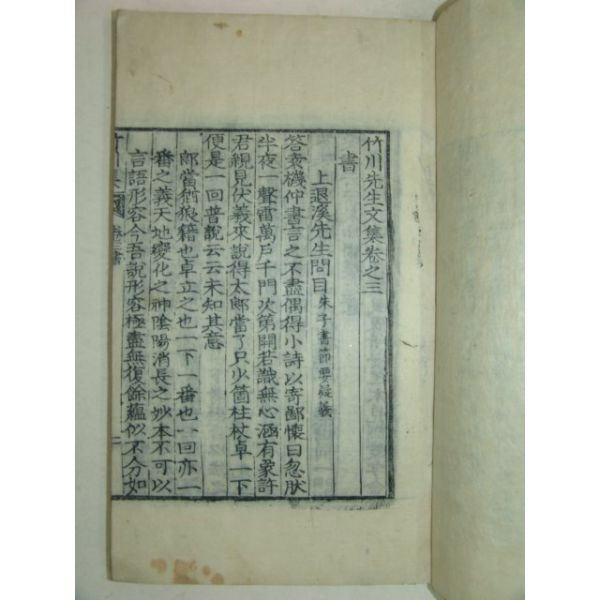 竹川先生文集卷之三
書
上退溪先生問目朱子書節要疑義
答袁機仲書言之不盡偶得小詩以寄鄙懷曰忽肰
半夜一聲雷萬戶千門次第開若識無心涵有象許
君親見伏羲來說得太郎當了只少箇柱杖卓一下
便是一回普說云云未知其意
郎當猶狼籍也卓立之也一下一番也一回亦一
番之義天地變化之神陰陽消長之妙本不可以
言語形容今吾說形容極盡無復餘蘊似不分如
竹川 卷三 書